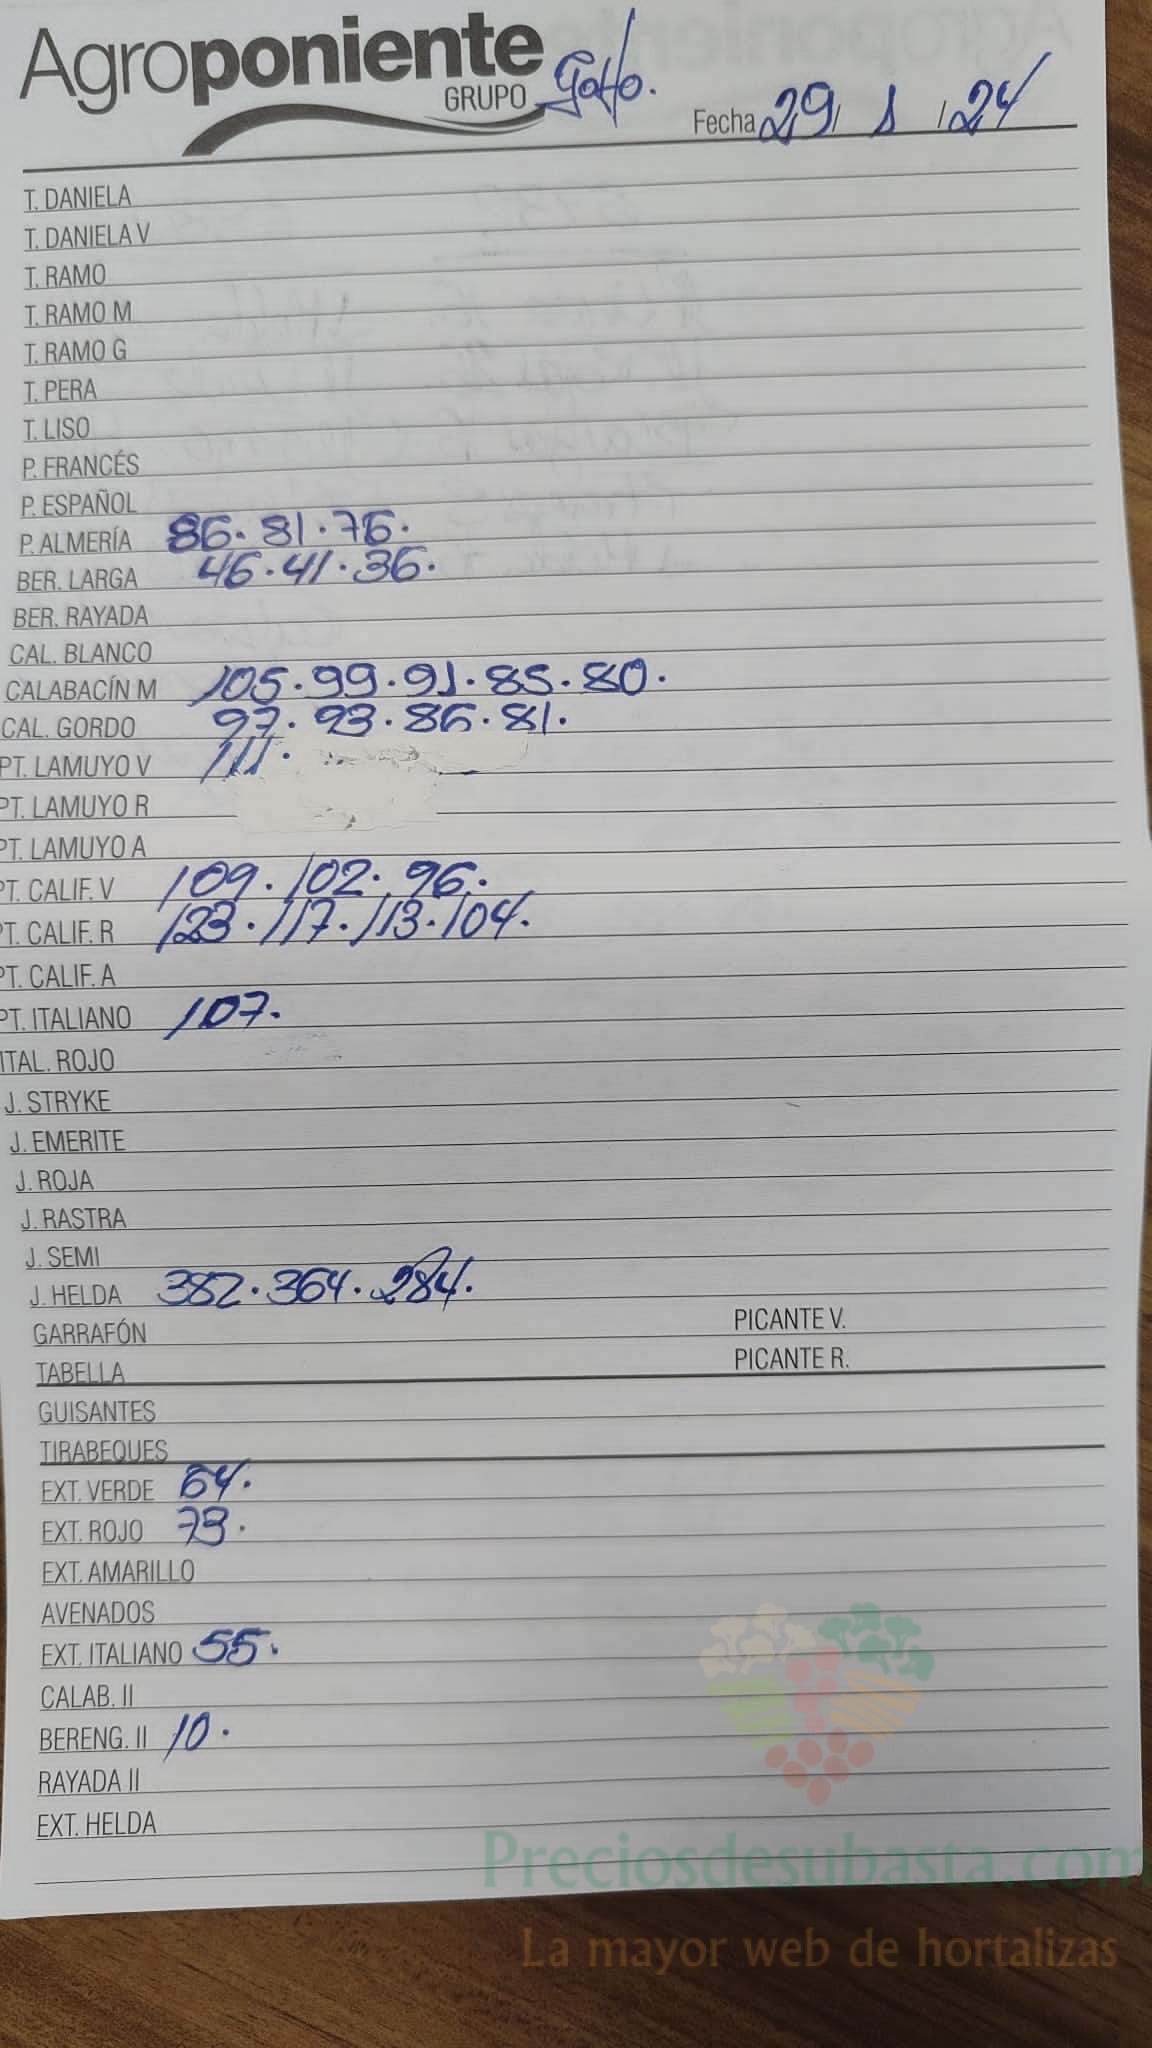 Agroponiente
GRUPO
Fecha 29/ 1 /24
T. DANIELA
T. DANIELA V
T. RAMO
T. RAMO M
T. RAMO G
T. PERA
T. LISO
P. FRANCÉS
P. ESPAÑOL
P. ALMERÍA 86. 81. 76.
BER. LARGA 46. 41. 36.
BER. RAYADA
CAL. BLANCO
CALABACÍN M 105. 99. 91. 85. 80.
CAL. GORDO 97. 93. 86. 81.
PT. LAMUYO V 111.
PT. LAMUYO R
PT. LAMUYO A
PT. CALIF. V 109. 102. 96.
PT. CALIF. R 123. 117. 113. 104.
PT. CALIF. A
PT. ITALIANO 107.
ITAL. ROJO
J. STRYKE
J. EMERITE
J. ROJA
J. RASTRA
J. SEMI
J. HELDA 382. 364. 284.
GARRAFÓN PICANTE V.
TABELLA PICANTE R.
GUISANTES
TIRABEQUES
EXT. VERDE 64.
EXT. ROJO 73.
EXT. AMARILLO
AVENADOS
EXT. ITALIANO 55.
CALAB. II
BERENG. II 10.
RAYADA II
EXT. HELDA
Preciosdesubasta.com
La mayor web de hortalizas